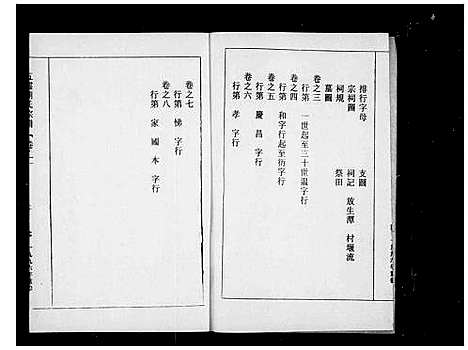 排行字母 支圖
宗祠圖 祠記 放生潭 村堰流
祠規 祭田
墓圖
卷之三
行第 一世起至三十世盡字行
卷之四
行第 和字行起至衍字行
卷之五
行第 慶昌字行
卷之六
行第 孝字行
卷之七
行第 悌字行
卷之八
行第 家國本字行